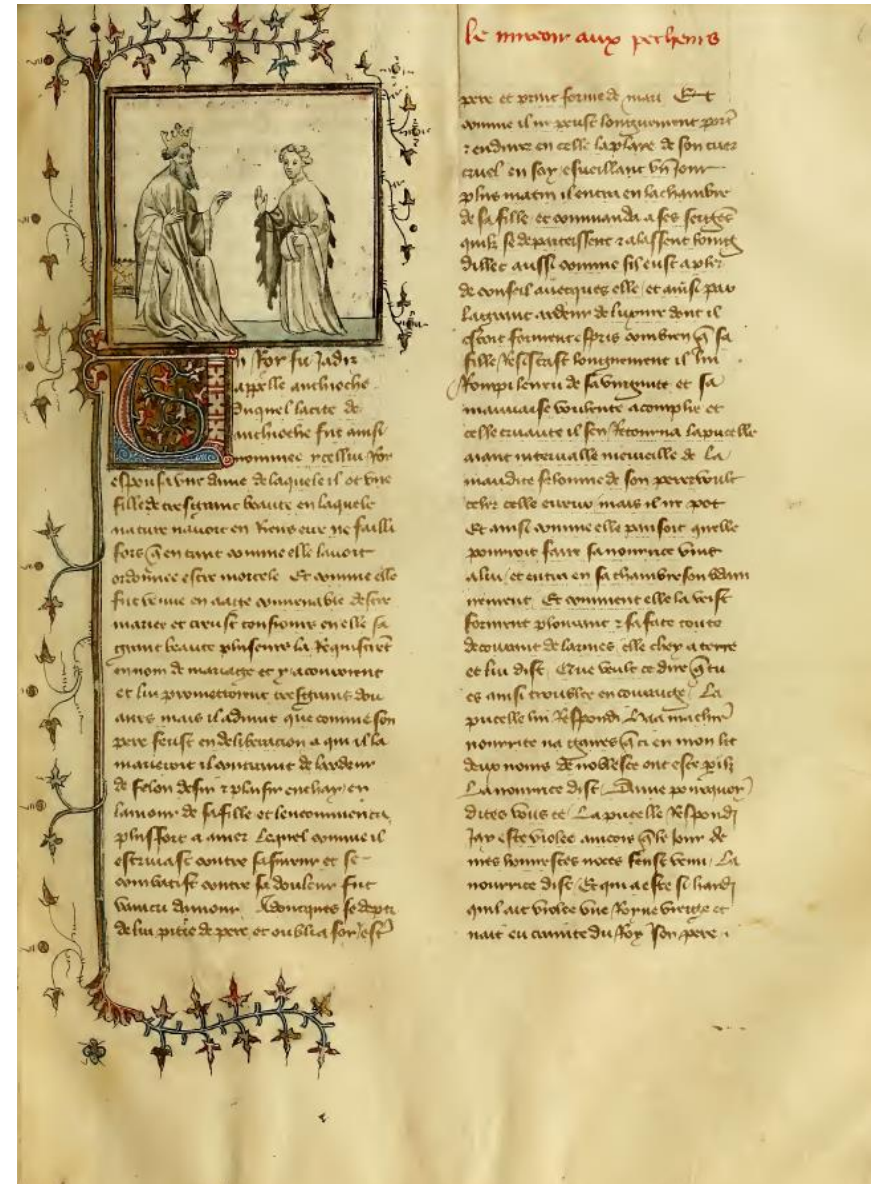 le miroir aux pecheurs
Un Roy fu Jadiz
appelle anthioche
Duquel la cite de
anthioche fut ainsi
nommee ycellui Roy
espousa vne dame de laquele il ot vne
fille de tresgrant beaute en laquele
nature nauoit en Riens eur ne failli
fors q̃ en tant comme elle lauoit
ordonnee estre mortele Et comme elle
fut venue en aage conuenable destre
mariee et creust tousiours en elle sa
grant beaute pluseurs la Requistrẽt
en nom de mariage et y acouroient
et lui promettoient tresgrans dou
aires mais il aduint que comme son
pere feust en deliberacion a qui il la
marieroit il contraint de lardeur
de felon desir & plaisir enchay en
lamour de sa fille et lencommenca
plus fort a amer Lequel comme il
estriuast contre sa fureur et se
combatist contre sa douleur fut
vaincu damour Adoncques se departi
de lui pitie de pere et oublia soy estre
pere et print forme de mari Et
comme il ne peust longuement porter
& endurer en celle la plaie de son cuer
cruel en soy esueillant vn Jour
plus matin il entra en la chambre
de sa fille et commanda a ses sergẽs
quilz se departissent & alassent loing
dillec aussi comme sil eust a parler
de conseil auecques elle et ainsi par
la grant ardeur de luxure dont il
estoit forment espris combien q̃ sa
fille Resistast longuement il lui
Rompi le neu de sa virginite et sa
mauuaise voulente acomplie et
celle cruaute il sen Retourna la pucelle
aiant merueille de la
maudite felonnie de son pere voult
celer celle erreur mais il ne pot
Et ainsi comme elle pansoit quelle
pourroit faire sa nourrice vint
a lui et entra en sa chambre soudain
nement Et comment elle la veist
forment plourant & sa face toute
decourant de larmes elle chey a terre
et lui dist Que veult ce dire q̃ tu
es ainsi troublee en courage La
pucelle lui Respondi Ma chiere
nourrice na gaires q̃ ci en mon lit
deux noms de noblesce ont este periz
La nourrice dist Dame pourquoy
dites vous ce La pucelle Respondi
Jay este violee aincois q̃ le Jour de
mes honnestes noces feust venu La
nourrice dist Et qui a este si hardi
quil ait violee vne Royne vierge et
nait eu crainte du Roy son pere